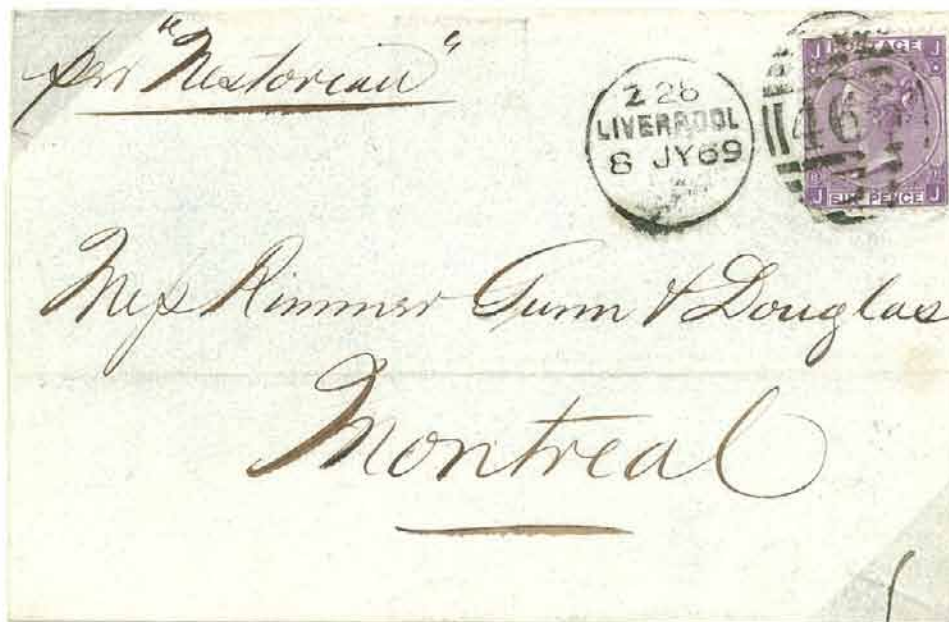 per "Nestorian"
Z 26
LIVERPOOL
8 JY 69
466
J POSTAGE J
J SIX PENCE J
Mess Rimmer Gunn & Douglas
Montreal